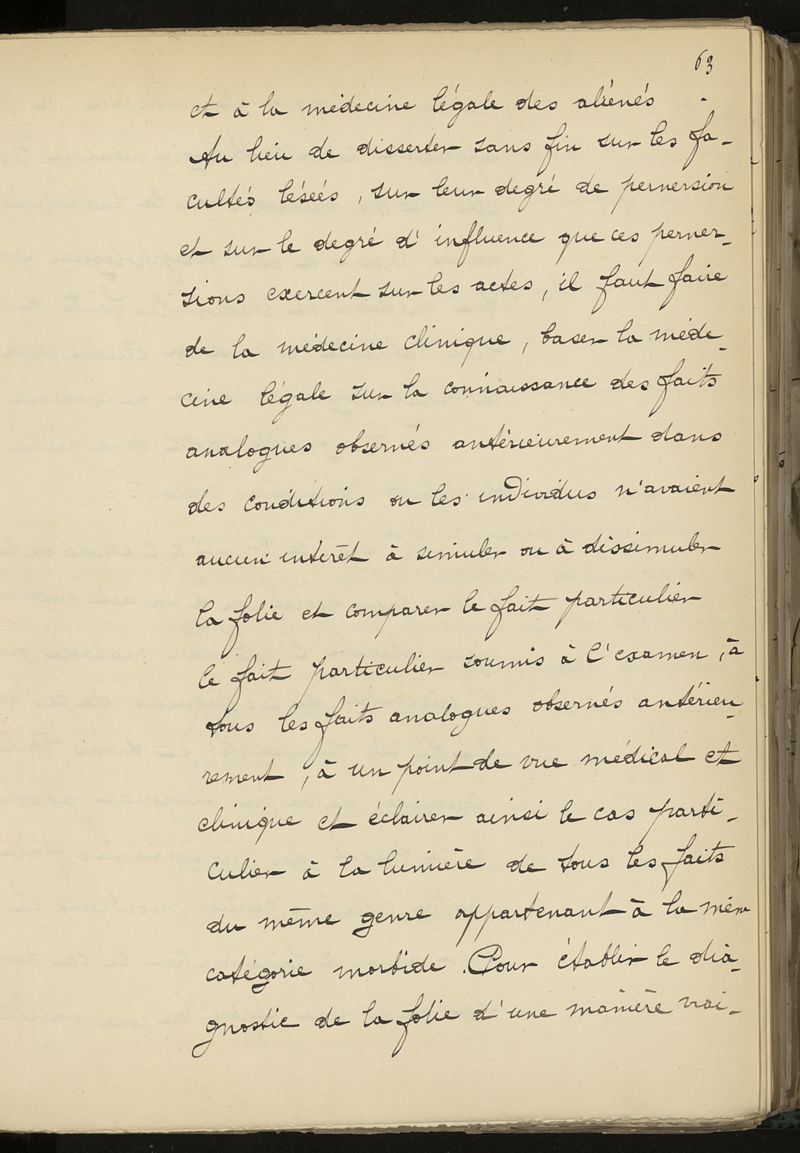 63
et à la médecine légale des aliénés.
Au lieu de disserter sans fin sur les fa-
cultés lésées, sur leur degré de perversion
et sur le degré d'influence que ces perver-
sions exercent sur les actes, il faut faire
de la médecine clinique, baser la méde-
cine légale sur la connaissance des faits
analogues observés antérieurement dans
des conditions ou les individus n'avaient
aucun interêt à simuler ou à dissimuler
la folie et comparer le fait particulier
le fait particulier soumis à l'examen, à
tous les faits analogues observés antérieu-
rement, à un point de vue médical et
clinique et éclairer ainsi le cas parti-
culier à la lumière de tous les faits
du même genre appartenant à la même
catégorie morbide. Pour établir le dia-
gnostic de la folie d'une manière vrai-